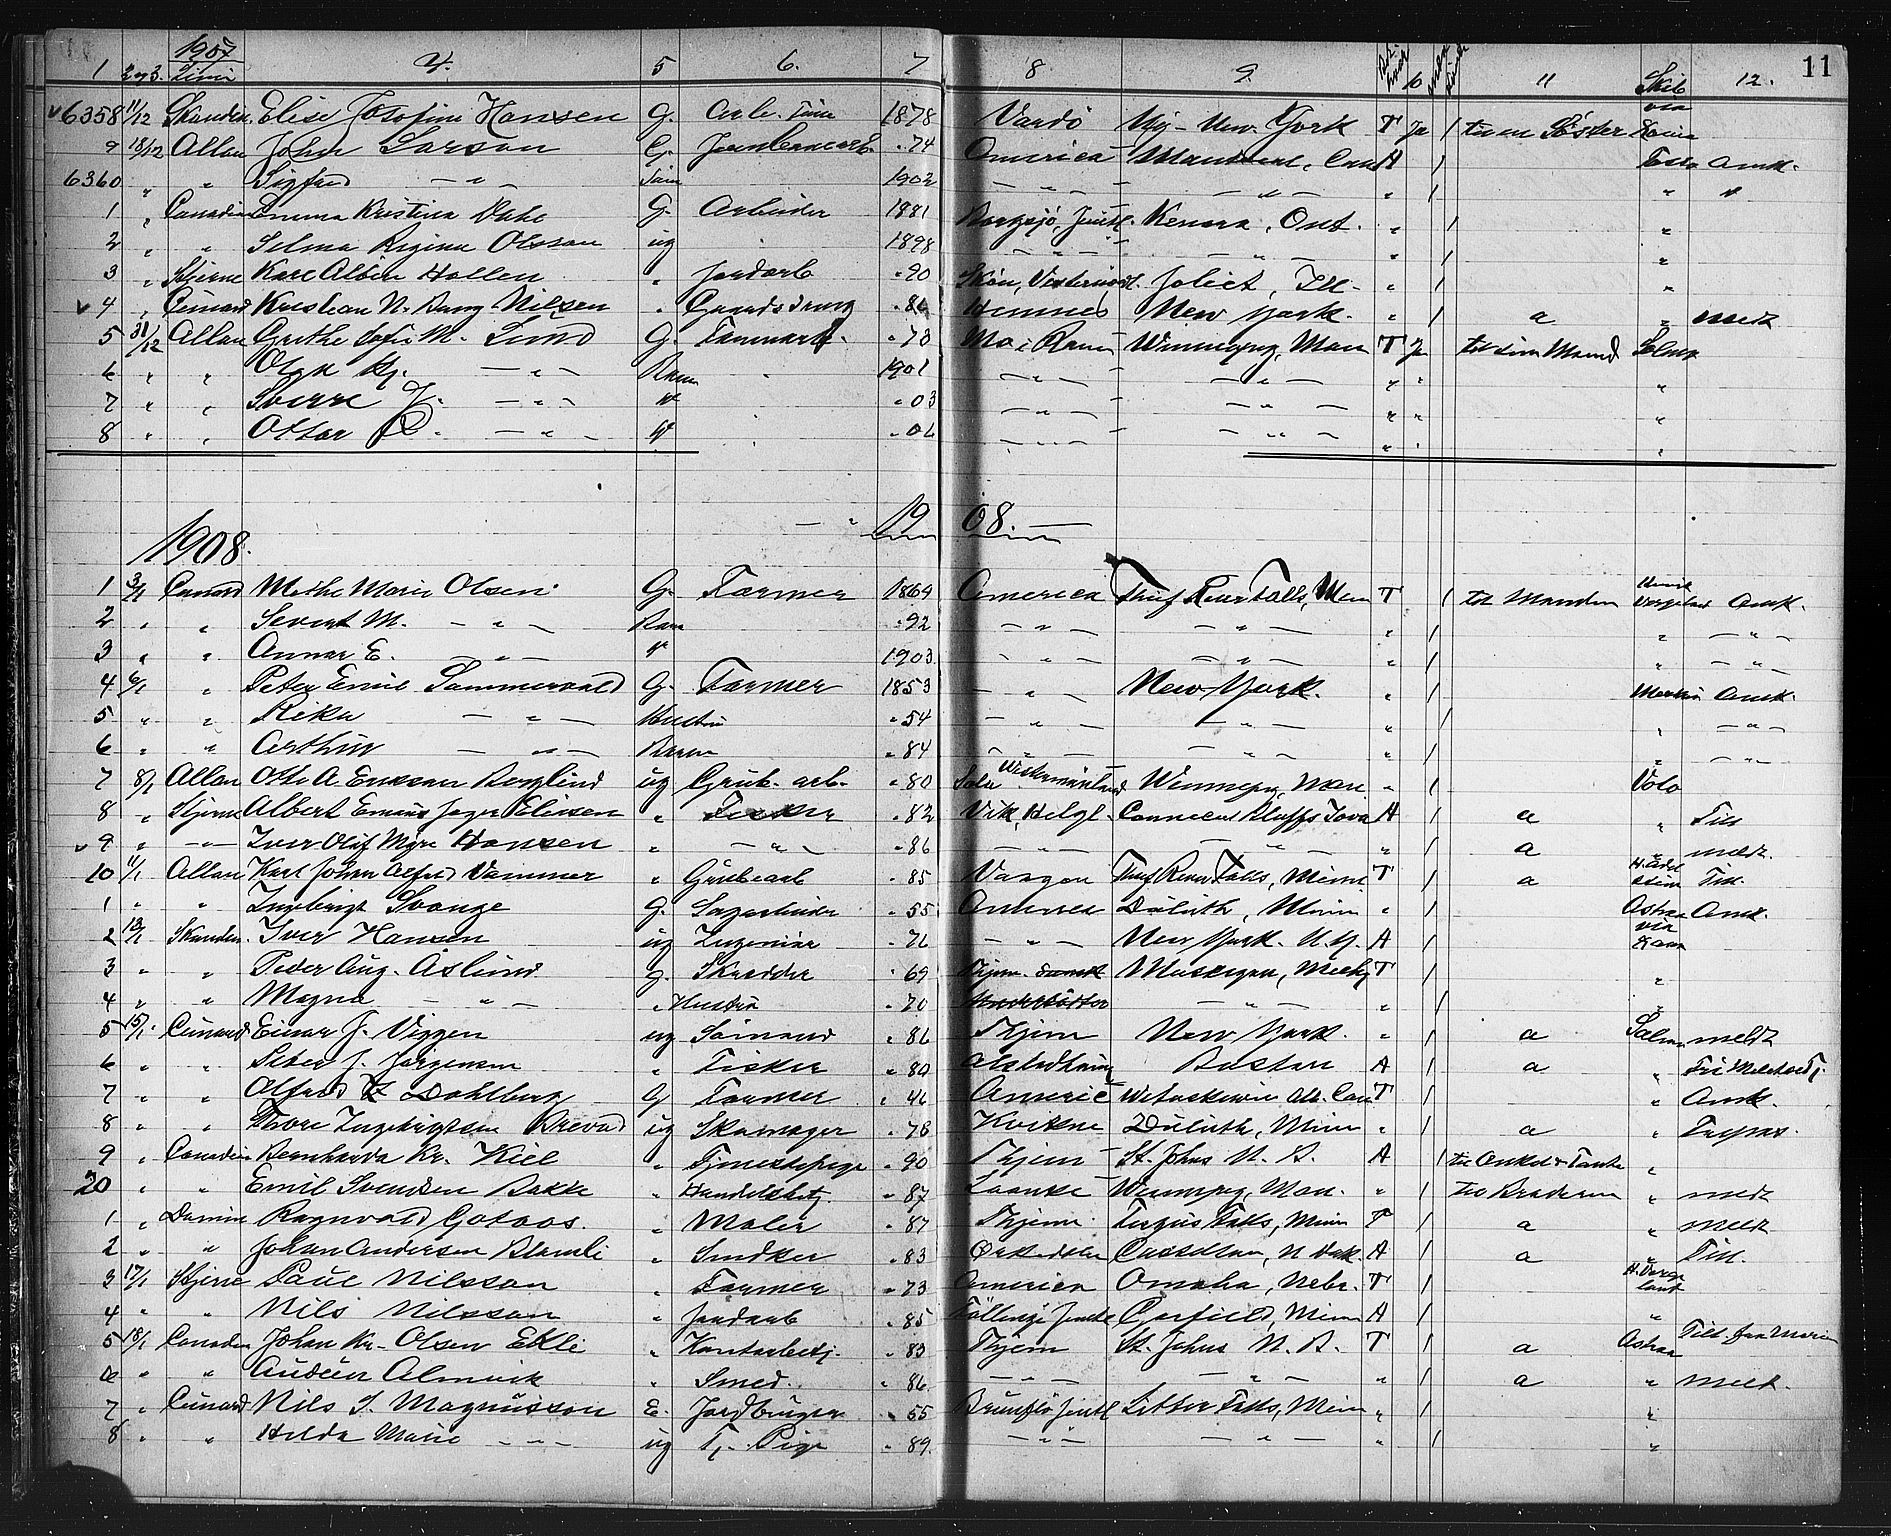 1907 11
1 2 og 3. Linie 4. 5 6. 7 8 9. 10 11 Skib 12.
6358 11/12 Skandin. Elise Josefine Hansen G. Arb. 1878 Vardö New York T Ja 1 til en Söster via
9 18/12 Allan John Larson G. 74 America Montreal, Can A 1 Tasso Amk.
6360 " " Sigfred — " — Sön 1902 — " — — " — " 1 " "
1 " Canadian Emma Kristina G. Arbeider 1881 Borgsjö, Jemtl. Kenora, Ont. " 1 "
2 " " Selma Regina Olsson ug " 1898 — " — — " — " 1 "
3 " Stjerne Karl Albin Hallen " Jordarb " 90 Skön, Joliet, Ill. " 1 "
4 " Cunard Kristian N. Nilsen " Gaardsdreng " 86 Hemnes New York. " 1 a " meldt
5 31/12 Allan Grethe Sofie M. Lund G. " 78 Mo i Ranen Winnipeg, Man T Ja 1 til sin Mand Salmo
6 " " Olga Kj. — " — Barn " 1901 — " — — " — " " "
7 " " Sverre J. — " — " " 03 — " — — " — " " "
8 " " Ottar P. — " — " " 06 — " — — " — " " "
1908. — " — 1908. —
1 3/1 Cunard Methe Marie Olsen G. Farmer 1869 America Thief River Falls, Minn T 1 til Manden Henrik Vergeland Amk.
2 " " Severt M. — " — Barn " 92 — " — — " — " 1 " — " —
3 " " Annar E. — " — " 1903 — " — — " — " 1 " — " —
4 6/1 " Peter Emil Sommervold G. Farmer 1853 — " — New York. " 1 Amk.
5 " " Rika — " — Hustru " 54 — " — — " — " 1 " — " —
6 " " Arthur — " — Barn " 84 — " — — " — " 1 " — " —
7 8/1 Allan Otto A. Erikson Berglind ug Grub. arb. " 80 Sala Westermanland Winnipeg, Man. " 1 Volo
8 " Stjerne Albert Eliesen " Fisker " 82 Vik, Helgl. Bluffs Iova A 1 a " Till
9 " — " — Iver Olaf Myre Hansen " — " — " 86 — " — — " — " 1 a " meldt.
10 11/1 Allan Karl Johan Alfred Vammer " Grubearb " 85 Thief River Falls, Minn T 1 a Till.
1 " " Ingebrigt Svange G. Sagarbeider " 55 America Duluth, Minn " 1 Astræa Amk.
2 13/1 Skandin. Iver Hansen ug Ingeniør " 76 — " — New York. N.Y. A 1 via
3 " " Peder Aug. Aslund g. Skrædder " 69 Thjem Muskegon, Mich T 1 "
4 " " Magna — " — " Hustru " 70 — " — " 1 "
5 15/1 Cunard Einar J. Viggen ug Sömand " 86 Thjem New York. " 1 a Salmo meldt
6 " " Peder J. Jørgensen " Fisker " 80 Boston A 1 a "
7 " " Alfred Dahlberg G Farmer " 46 America Wetaskiwin Alb. Can T 1 " Amk.
8 " " Thore Ingebrigtsen Brevad ug Skomager " 78 Kvikne Duluth, Minn " 1 a "
9 " Canadian Bernharda Kr. Kiel " Tjenestepige " 90 Thjem St. Johns N. B. A 1 til Onkel & Tante "
20 " " Emil Svendsen Bakke " Handelsbetj. " 87 Laanke Winnipeg, Man. " 1 til Broderen " meldt
1 " Domin Ragnvald Gotaas. " Maler " 87 Thjem Fergus Falls, Minn T 1 a " meldt
2 " " Johan Andersen " Snedker " 83 Orkedalen Casselton, N. Dak. A 1 a " Till.
3 17/1 Stjerne Paul Nilsson " Farmer " 73 America Omaha, Nebr. T 1 H. Vergeland
4 " " Nils Nilsson " Jordarb " 85 Föllinge Jemtl Garfield, Minn A 1 "
5 18/1 Canadian Johan Kr. Olsen Ekli " Kontorbetj. " 83 Thjem St. Johns N. B. T 1 a Astræa Till.
6 " " Audun Almvik " Smed. " 86 — " — — " — " 1 a " meldt.
7 " Cunard Nils S. Magnusson E. Jordbruger " 55 Brunflo Jemtl Little Falls, Minn " 1 "
8 " " Hilda Marie — " — ug Tj. Pige " 89 — " — — " — " 1 "